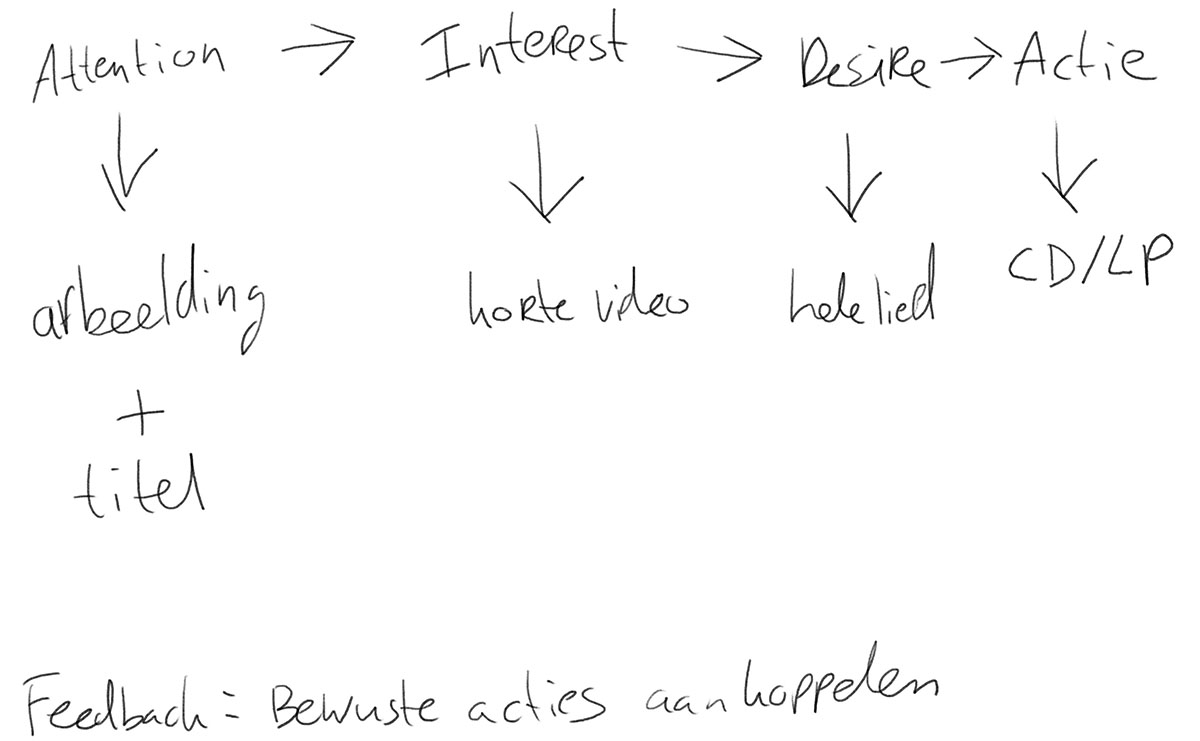 Attention → Interest → Desire → Actie
↓ ↓ ↓ ↓
afbeelding korte video hele lied CD/LP
+
titel
Feedback = Bewuste acties aan koppelen